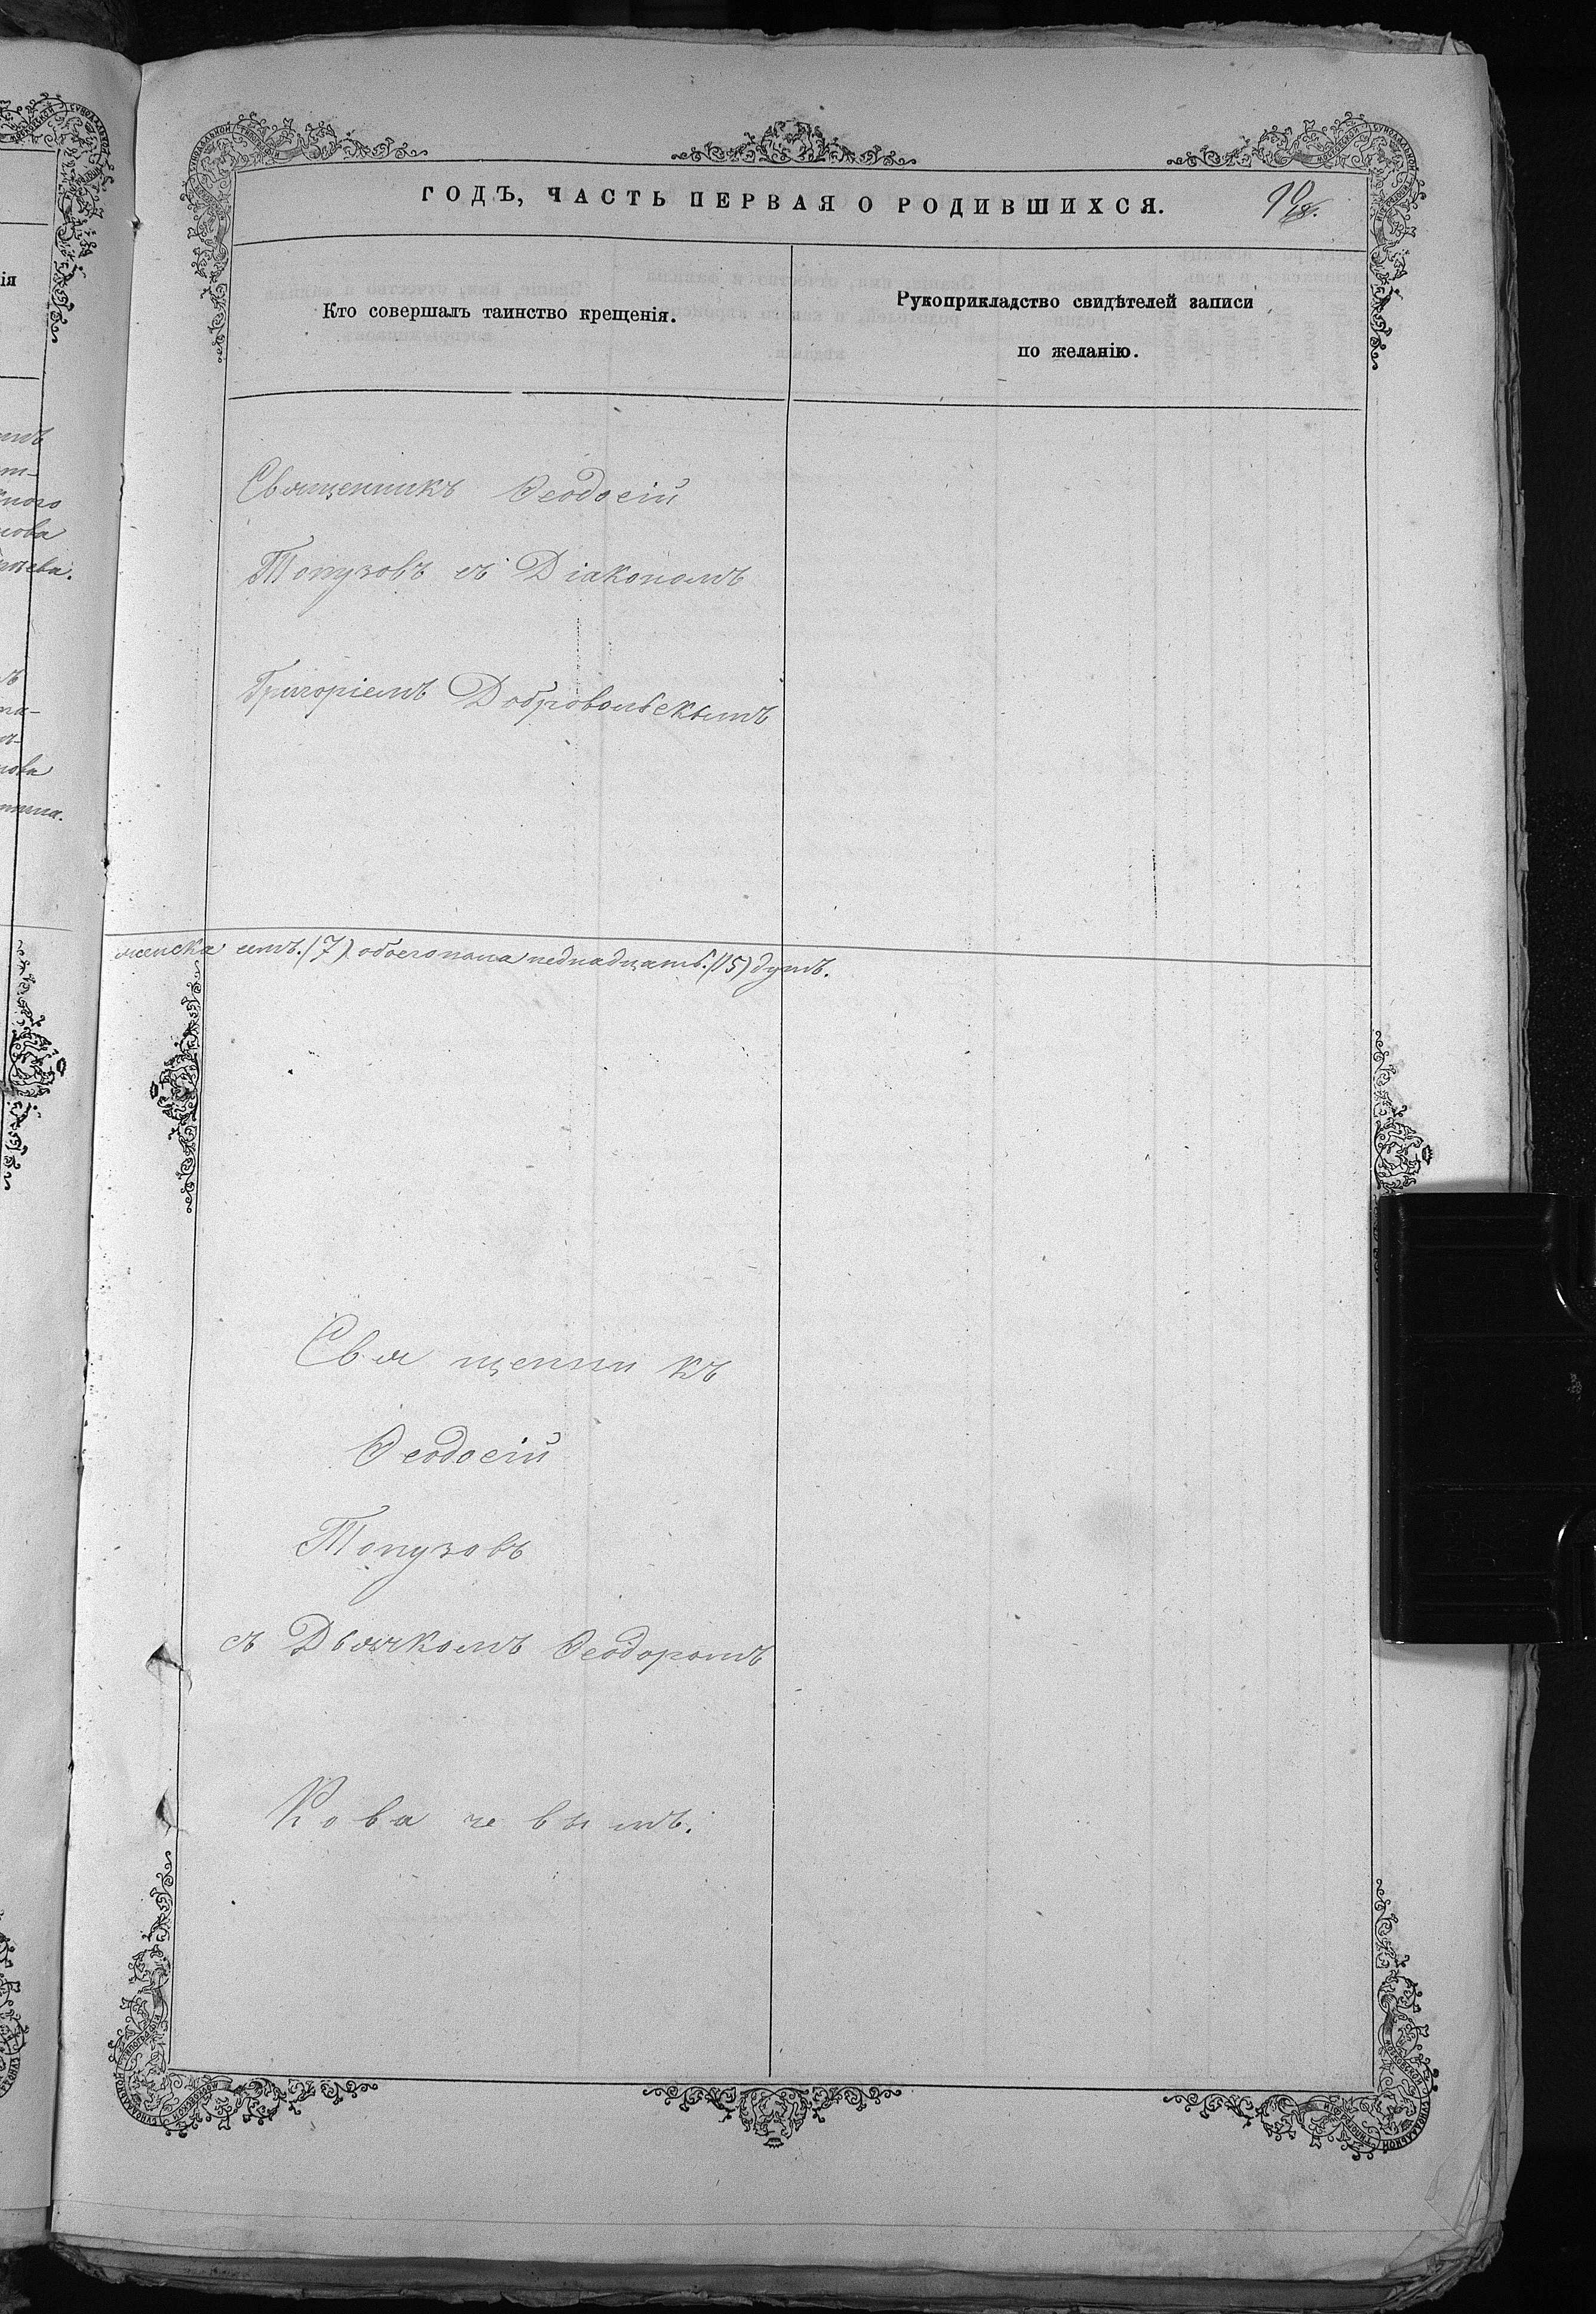 ГОДЪ, ЧАСТЬ ПЕРВАЯ О РОДИВШИХСЯ.
Кто совершалъ таинство крещенія.
Рукоприкладство свидѣтелей записи
по желанію.
Священникъ Ѳеодосій
Топузовъ съ Діакономъ
Григоріемъ Добровольскымъ
женска семь. (7) обоего пола педнадцать. (15) душъ.
Священникъ
Ѳеодосій
Топузовъ
съ Дьячкомъ Ѳеодоромъ
Ковачевымъ.